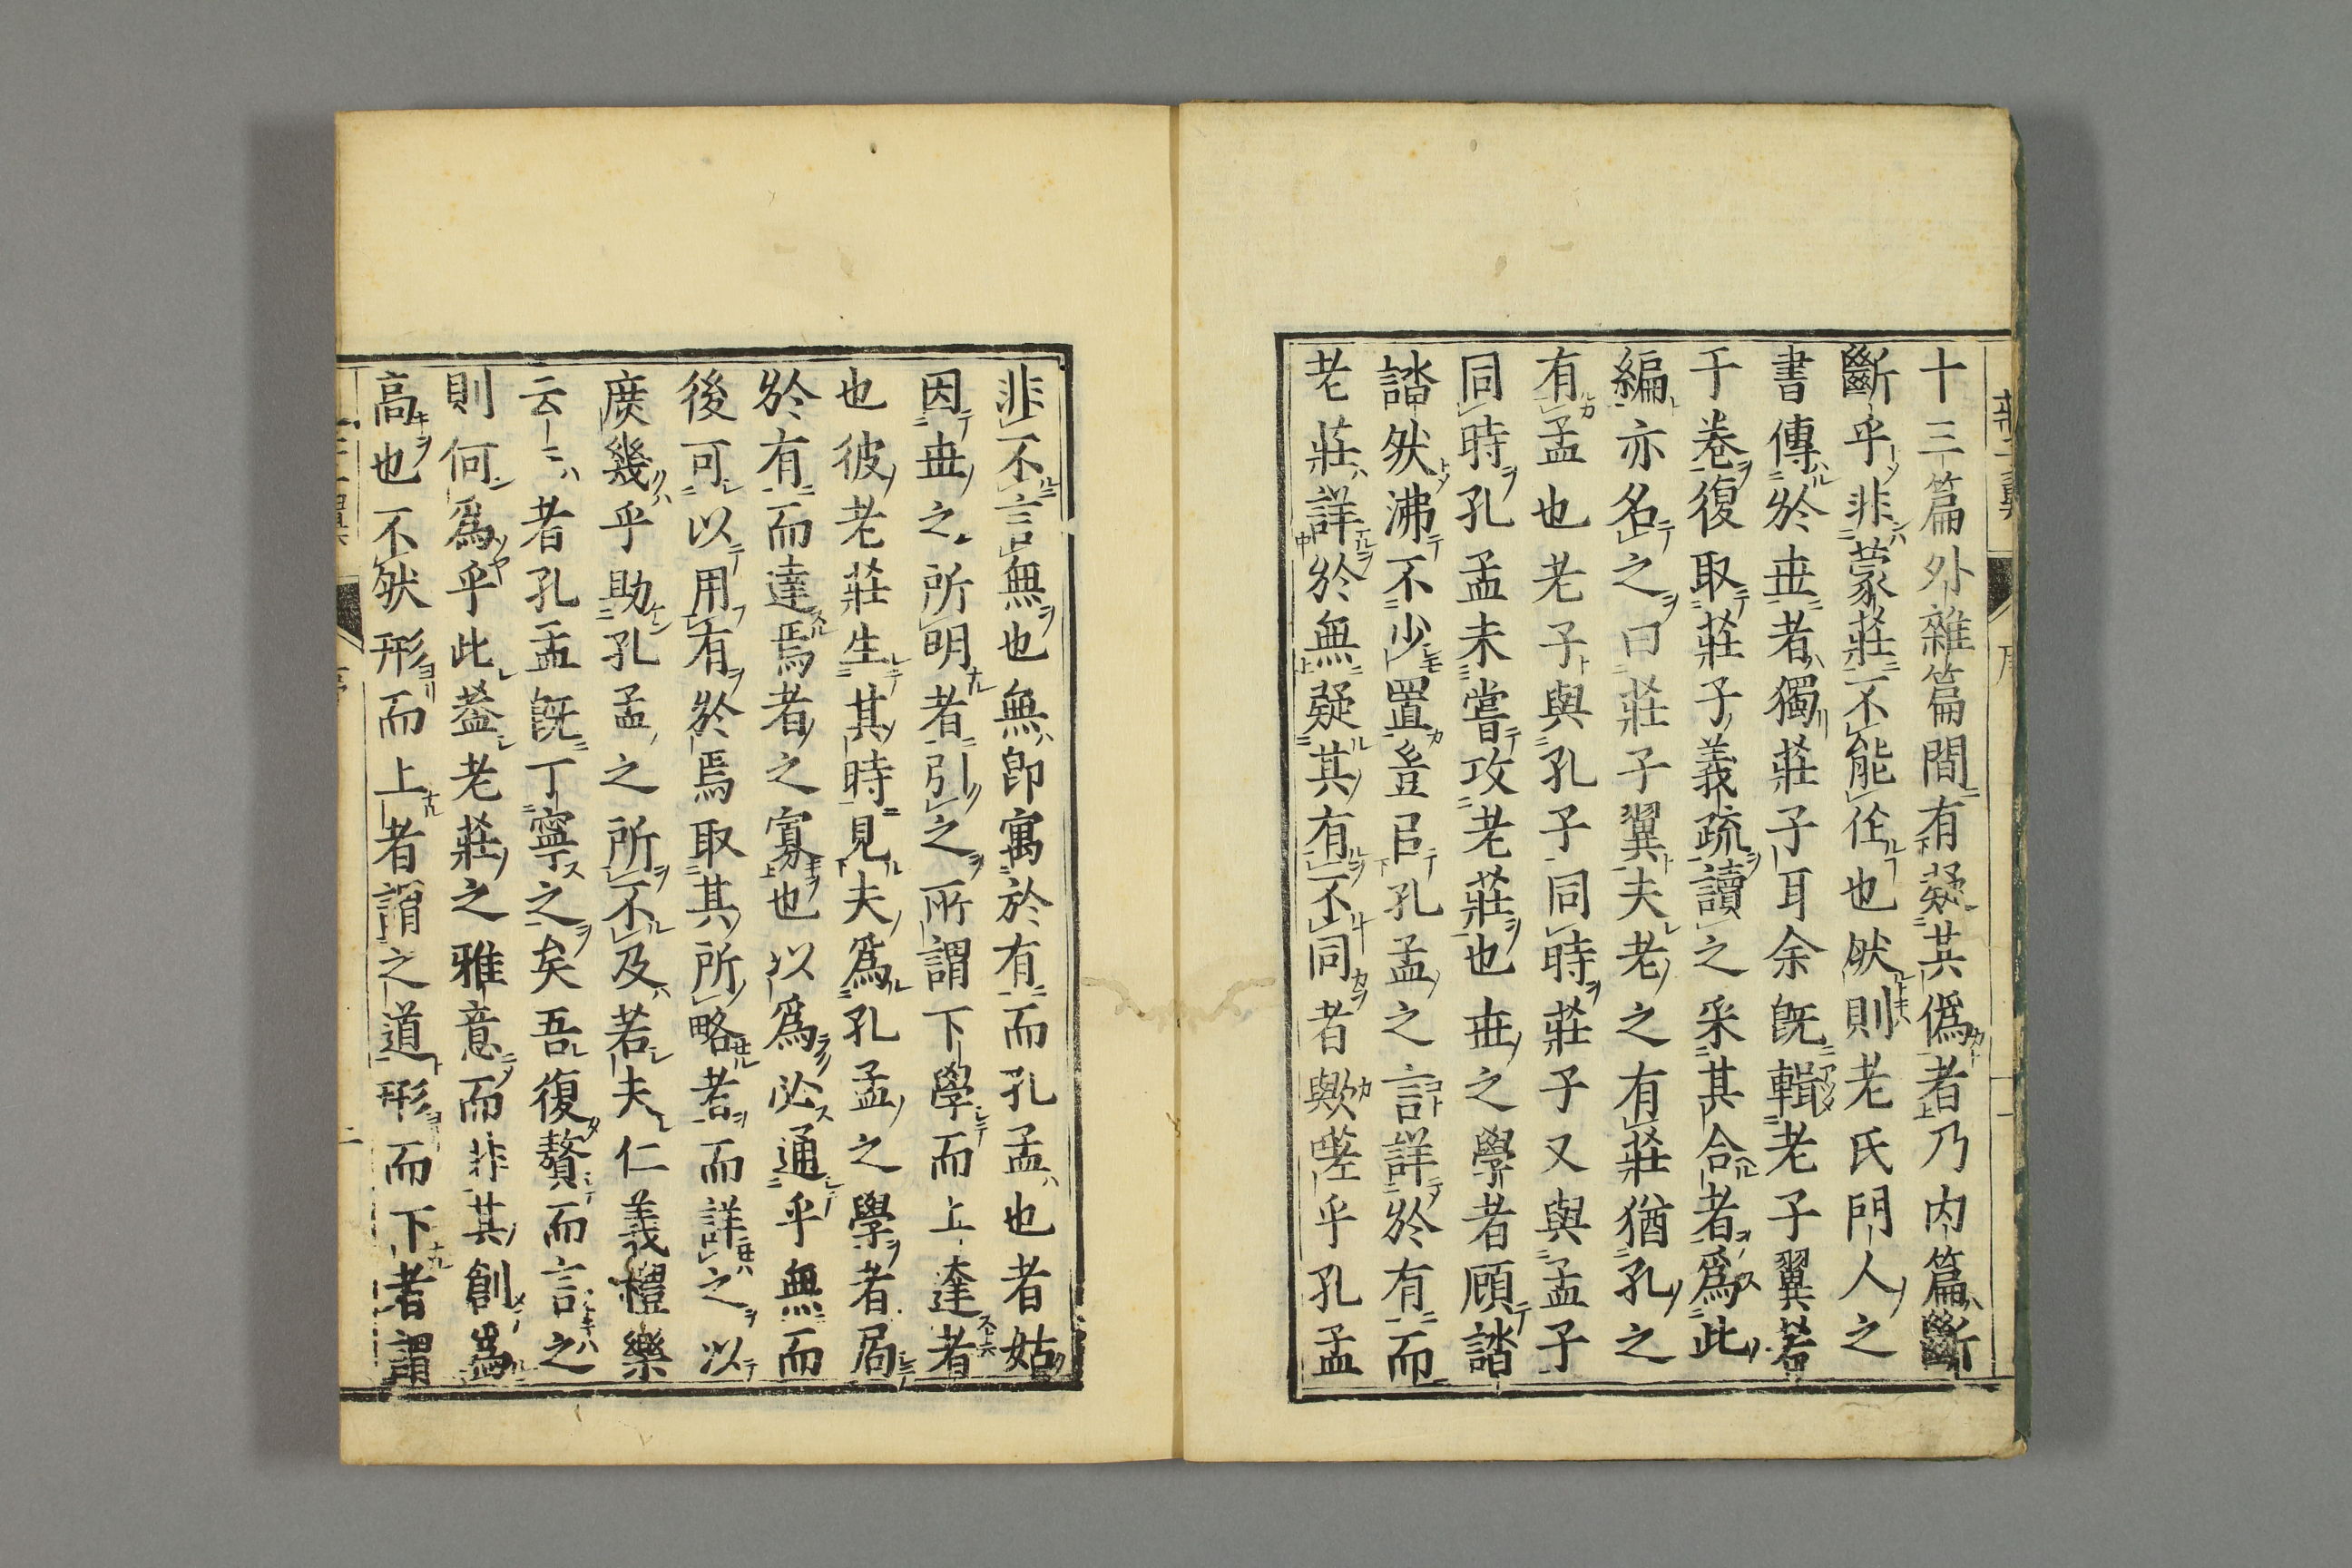 十三篇外雜篇間有疑其僞者乃内篇斷
斷乎非蒙莊不能作也然則老氏門人之
書傳於世者獨莊子耳余旣輯老子翼若
干卷復取莊子義疏讀之采其合者爲此
編亦名之曰莊子翼夫老之有莊猶孔之
有孟也老子與孔子同時莊子又與孟子
同時孔孟未嘗攻老莊也世之學者顧諮
諮然沸不少置豈㠯孔孟之言詳於有而
老莊詳於無疑其有不同者歟嗟乎孔孟
非不言無也無卽寓於有而孔孟也者姑
因世之所明者引之所謂下學而上達者
也彼老莊生其時見夫爲孔孟之學者局
於有而達焉者之寡也以爲必通乎無而
後可以用有於焉取其所略者而詳之以
庶幾乎助孔孟之所不及若夫仁義禮樂
云云者孔孟旣丁寧之矣吾復贅而言之
則何爲乎此葢老莊之雅意而非其創爲
高也不然形而上者謂之道形而下者謂